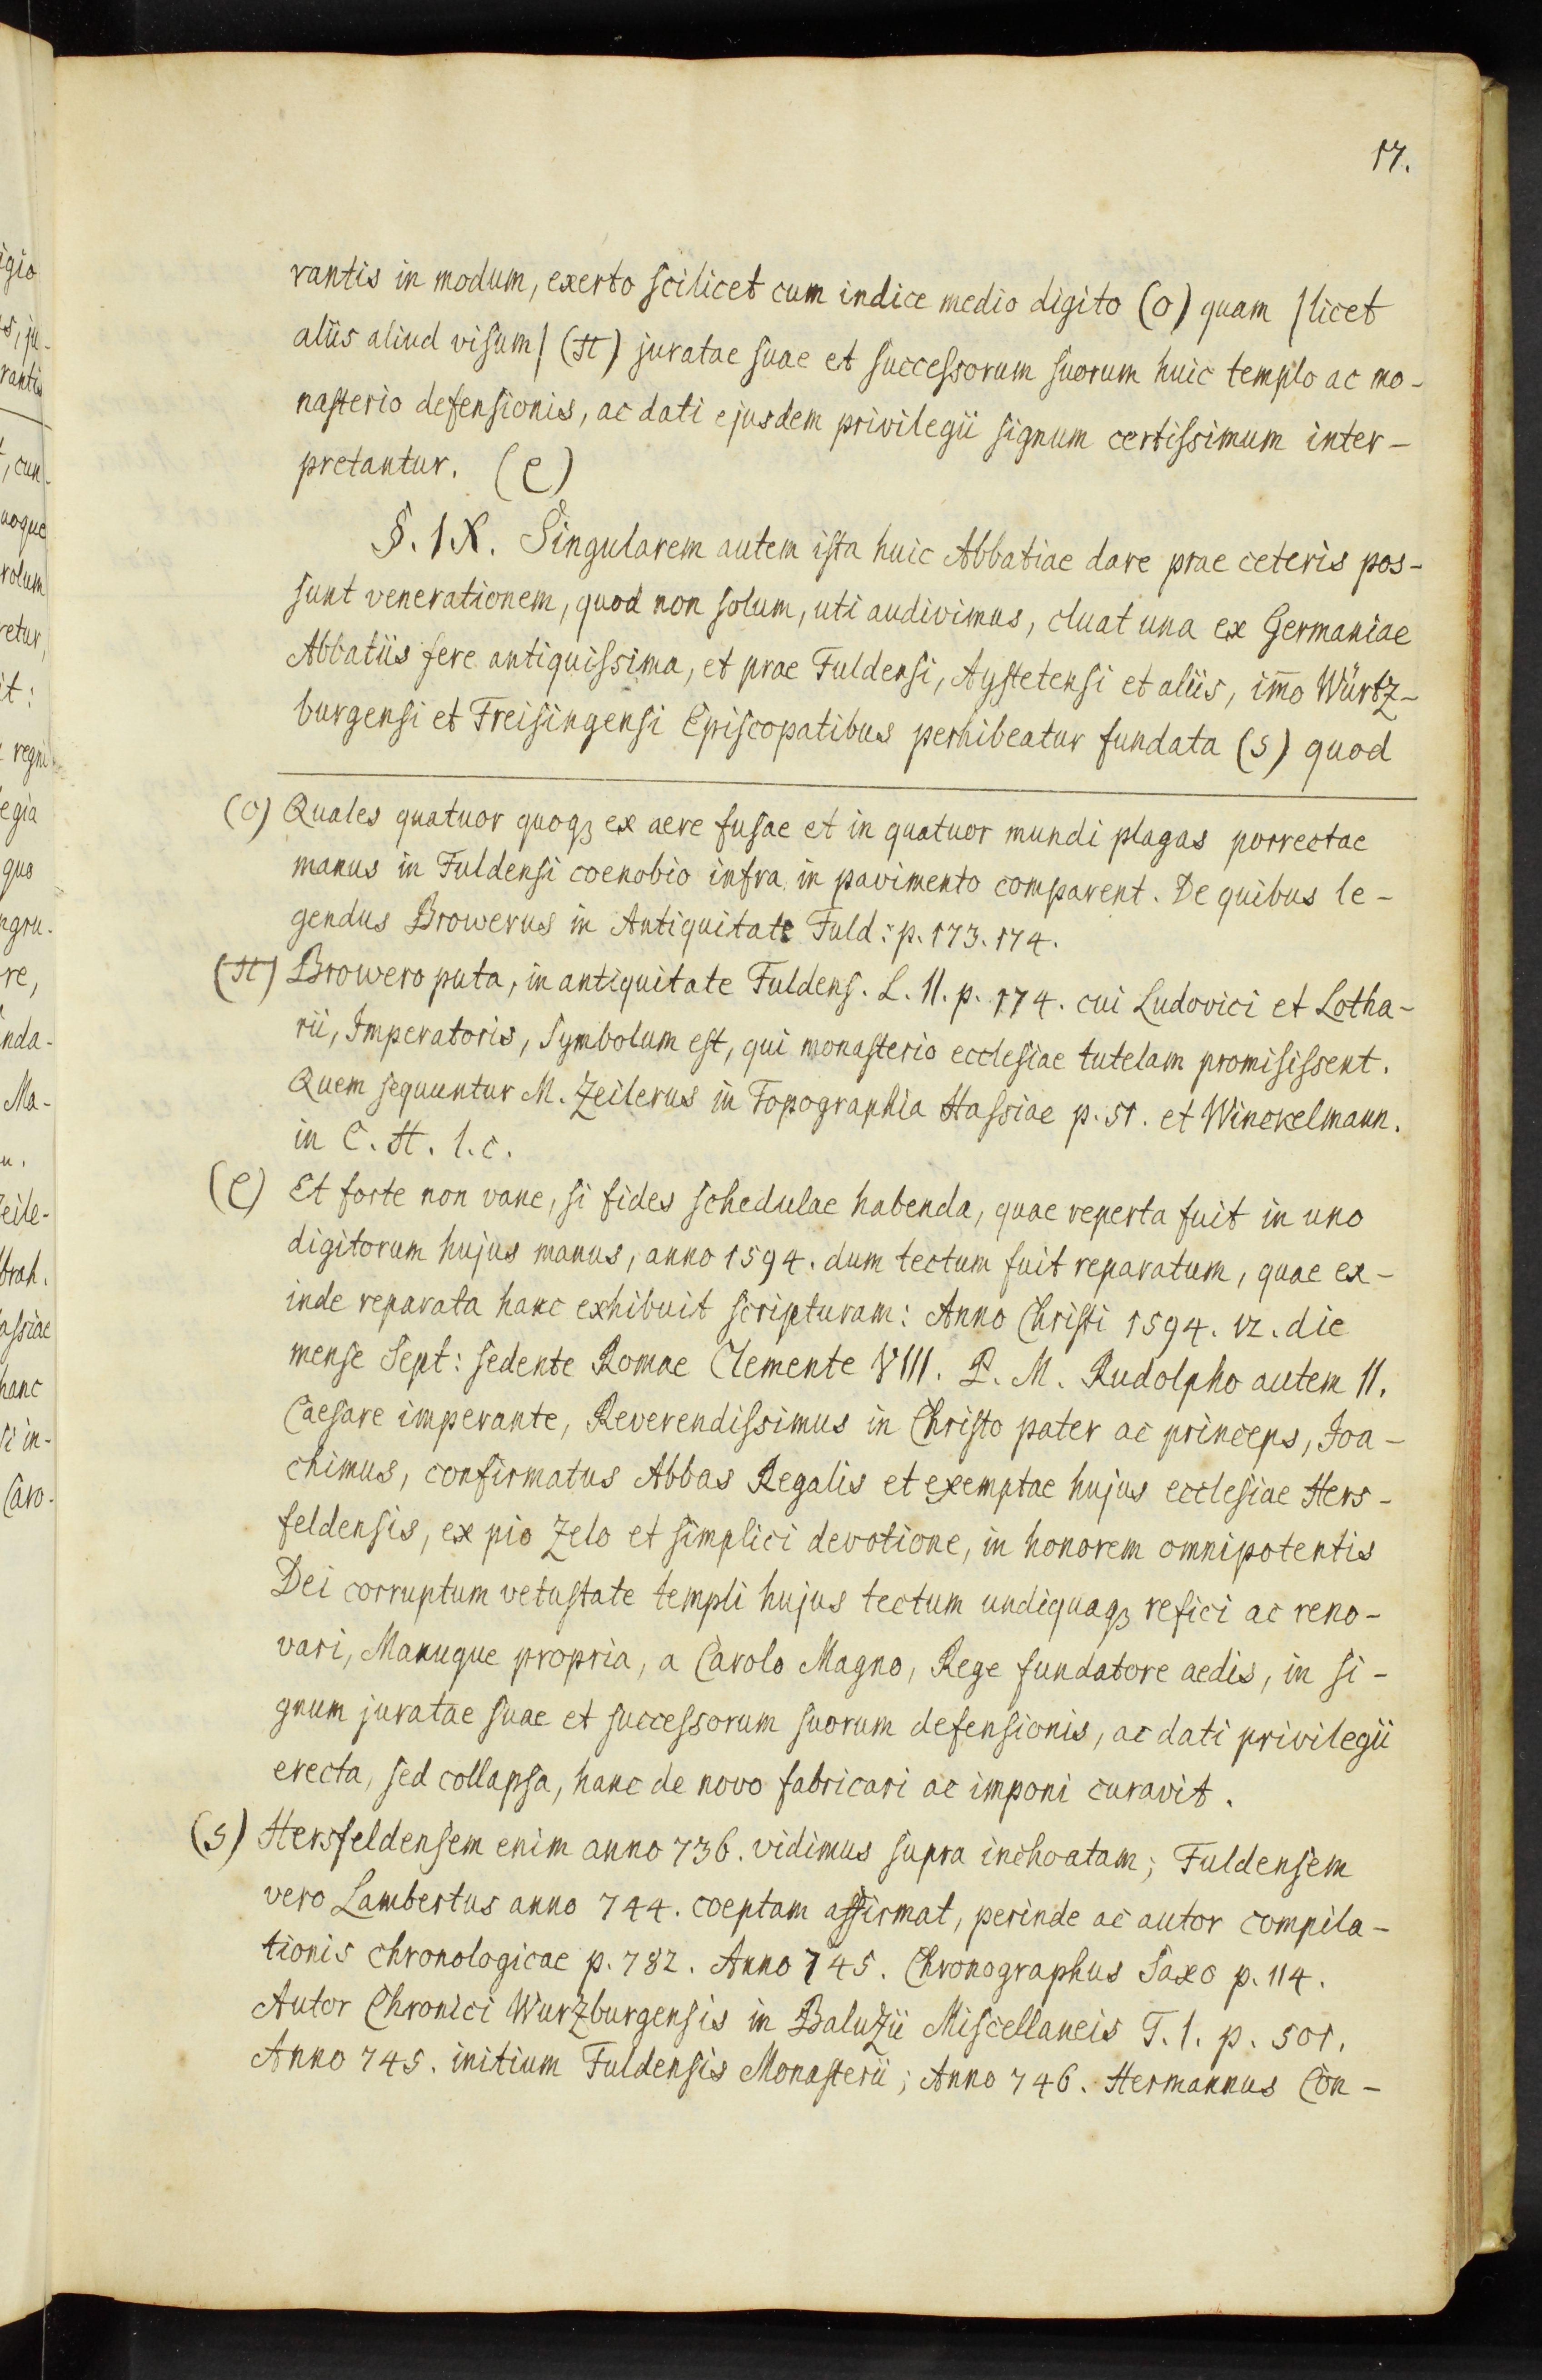 17.
rantis in modum, exerto scilicet cum indice medio digito (o) quam /licet
aliis aliud visum/ (π) juratae suae et successorum suorum huic templo ac mo-
nasterio defensionis, ac dati ejusdem privilegii signum certissimum inter-
pretantur. (ϱ)
§. IX. Singularem autem ista huic Abbatiae dare prae ceteris pos-
sunt venerationem, quod non solum, uti audivimus, cluat una ex Germaniae
Abbatiis fere antiquissima, et prae Fuldensi, Aystetensi et aliis, im̄o Würtz-
burgensi et Freisingensi Episcopatibus perhibeatur fundata (s) quod
(o) Quales quatuor quoqꝫ ex aere fusae et in quatuor mundi plagas porrectae
manus in Fuldensi coenobio infra in pavimento comparent. De quibus le-
gendus Browerus in Antiquitate Fuld: p. 173. 174.
(π) Browero puta, in antiquitate Fuldens. L. II. p. 174. cui Ludovici et Lotha-
rii, Imperatoris, Symbolum est, qui monasterio ecclesiae tutelam promisissent.
Quem sequuntur M. Zeilerus in Topographia Hassiae p. 51. et Winckelmann.
in C. H. l. c.
(ϱ) Et forte non vane, si fides schedulae habenda, quae reperta fuit in uno
digitorum hujus manus, anno 1594. dum tectum fuit reparatum, quae ex-
inde reparata hanc exhibuit scripturam: Anno Christi 1594. 12. die
mense Sept: sedente Romae Clemente VIII. P. M. Rudolpho autem II.
Caesare imperante, Reverendissimus in Christo pater ac princeps, Joa-
chimus, confirmatus Abbas Regalis et exemptae hujus ecclesiae Hers-
feldensis, ex pio zelo et simplici devotione, in honorem omnipotentis
Dei corruptum vetustate templi hujus tectum undiquaqꝫ refici ac reno-
vari, Manuque propria, a Carolo Magno, Rege fundatore aedis, in si-
gnum juratae suae et successorum suorum defensionis, ac dati privilegii
erecta, sed collapsa, hanc de novo fabricari ac imponi curavit.
(s) Hersfeldensem enim anno 736. vidimus supra inchoatam; Fuldensem
vero Lambertus anno 744. coeptam affirmat, perinde ac autor compila-
tionis chronologicae p. 782. Anno 745. Chronographus Saxo p. 114.
Autor Chronici Wurzburgensis in Baluzii Miscellaneis T. I. p. 501.
Anno 745. initium Fuldensis Monasterii; Anno 746. Hermannus Con-